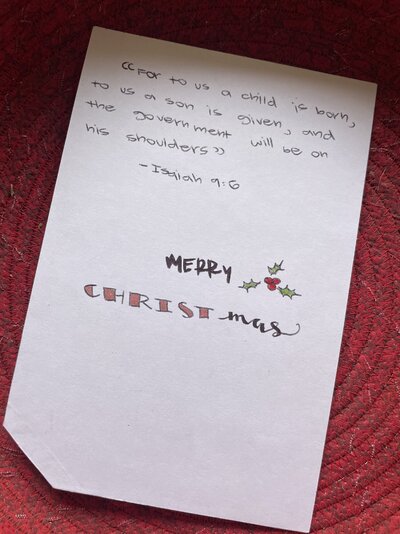 “For to us a child is born,
to us a son is given, and
the government will be on
his shoulders”
- Isaiah 9:6
MERRY
CHRISTmas